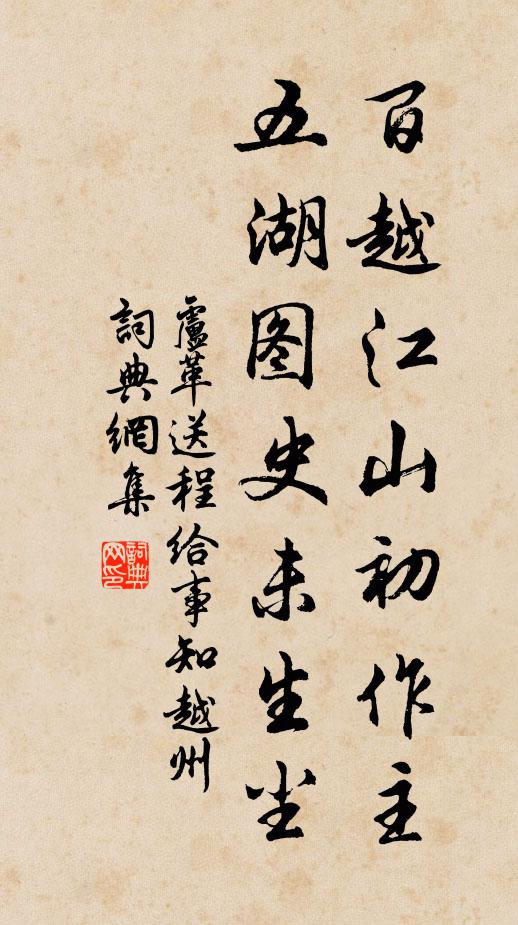 百越江山初作主
五湖图史未生尘
盧革送程给事知越州
詞典網集
詞典网印